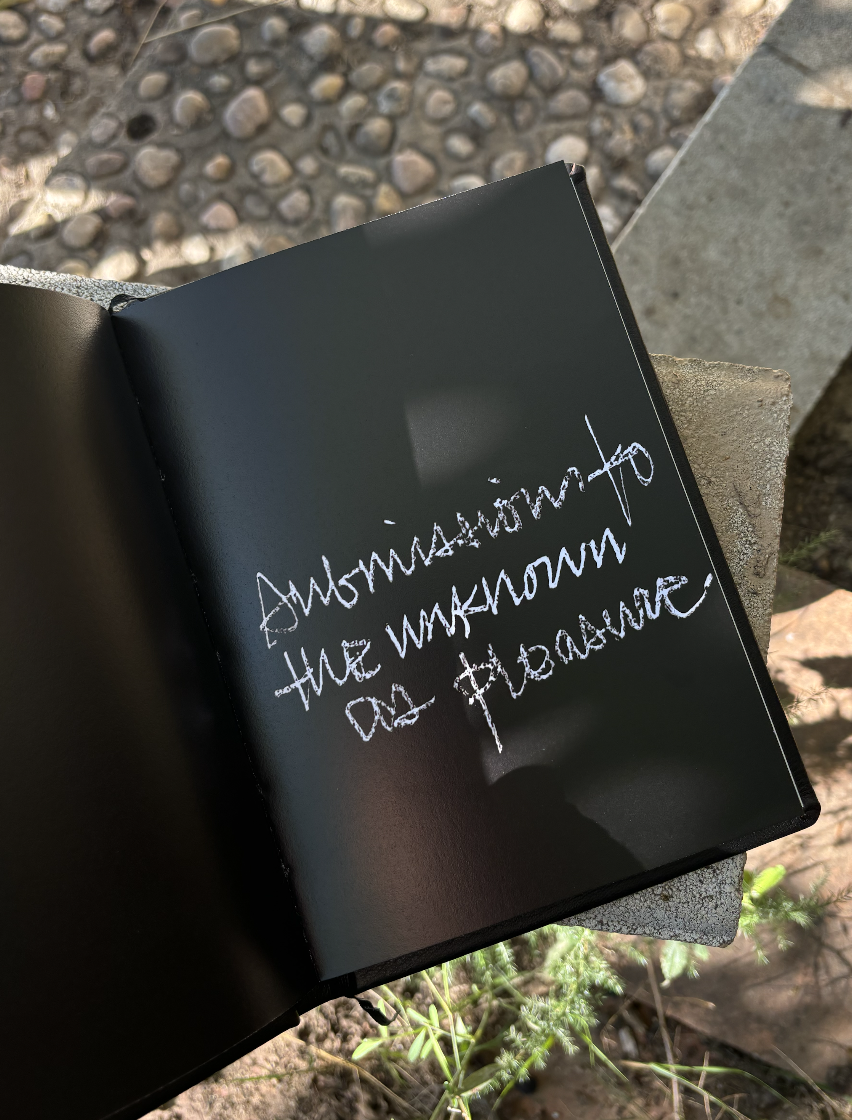 Submission to
the unknown
as pleasure